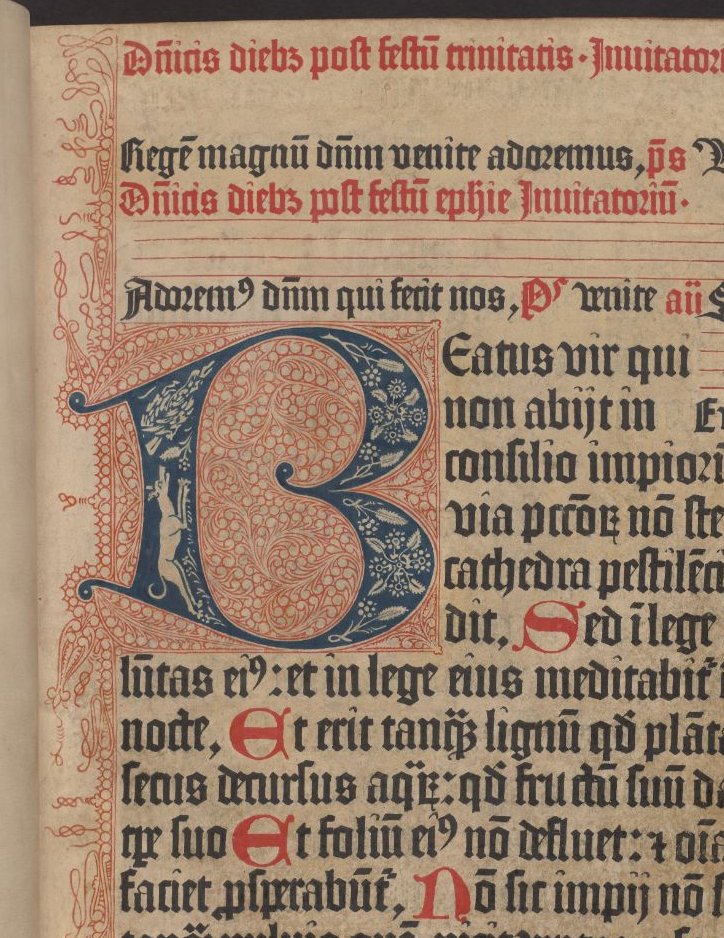 Dn̄icis diebꝫ post festū trinitatis · Inuitator
Regē magnū dn̄m venite adoremus, p̄s V
Dn̄icis diebꝫ post festū ephie Inuitatoriū ·
Adoremꝰ dn̄m qui fecit nos, Ps venite aū S
BEatus vir qui
non abijt in E
consilio impiorū
via pccōꝝ nō ste
cathedra pestilēci
dit, Sed ī lege
lūtas eiꝰ: et in lege eius meditabit᷑
nocte, Et erit tanꝙ̄ lignū qd̄ plāta
secus decursus aqꝝ: qd̄ fructū suū da
tꝑe suo Et foliū eiꝰ nō defluet: ⁊ oīa
faciet ꝓsꝑabūt᷑, Nō sic impij nō s